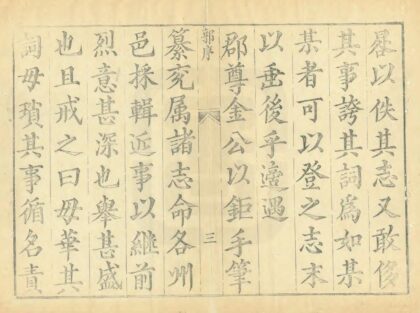 畧以佚其志又敢侈
其事誇其詞爲如某
某者可以登之志末
以垂後乎適遇
郡尊金公以鉅手筆
郭序
三
纂兖属諸志命各州
邑採輯近事以繼前
烈意甚深也舉甚盛
也且戒之曰毋華其
詞毋瑣其事循名責